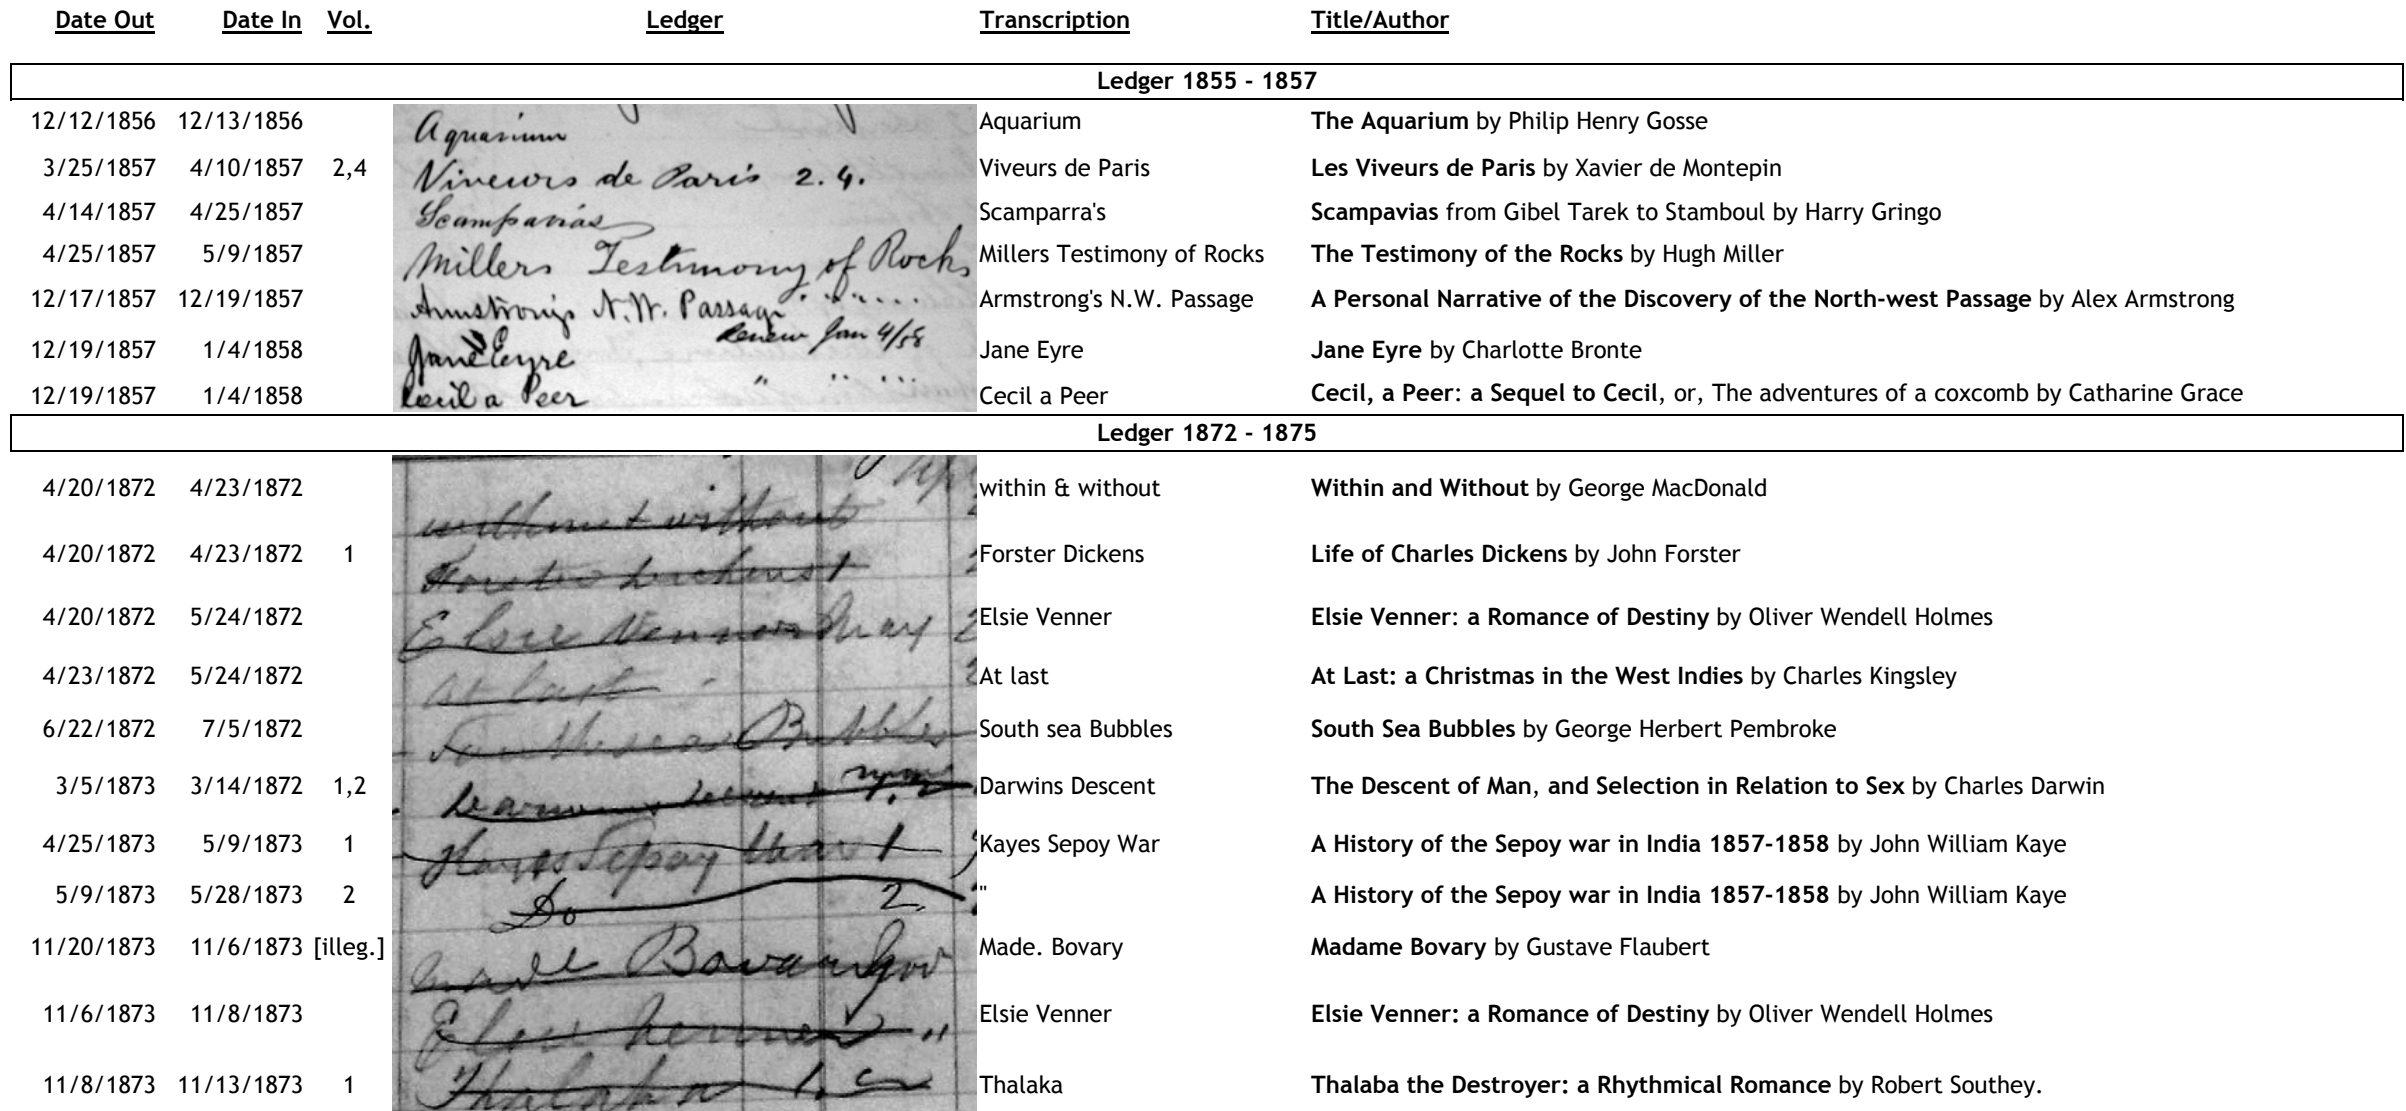 Date Out Date In Vol. Ledger Transcription Title/Author
Ledger 1855 - 1857
12/12/1856 12/13/1856 Aquarium Aquarium The Aquarium by Philip Henry Gosse
3/25/1857 4/10/1857 2,4 Viveurs de Paris 2. 4. Viveurs de Paris Les Viveurs de Paris by Xavier de Montepin
4/14/1857 4/25/1857 Scampavias Scamparra's Scampavias from Gibel Tarek to Stamboul by Harry Gringo
4/25/1857 5/9/1857 Millers Testimony of Rocks Millers Testimony of Rocks The Testimony of the Rocks by Hugh Miller
12/17/1857 12/19/1857 Armstrongs N.W. Passage Armstrong's N.W. Passage A Personal Narrative of the Discovery of the North-west Passage by Alex Armstrong
Renew Jan 4/58
12/19/1857 1/4/1858 Jane Eyre Jane Eyre Jane Eyre by Charlotte Bronte
12/19/1857 1/4/1858 Cecil a Peer " " " Cecil a Peer Cecil, a Peer: a Sequel to Cecil, or, The adventures of a coxcomb by Catharine Grace
Ledger 1872 - 1875
4/20/1872 4/23/1872 within & without within & without Within and Without by George MacDonald
4/20/1872 4/23/1872 1 Forster Dickens 1 Forster Dickens Life of Charles Dickens by John Forster
4/20/1872 5/24/1872 Elsie Venner May Elsie Venner Elsie Venner: a Romance of Destiny by Oliver Wendell Holmes
4/23/1872 5/24/1872 At last At last At Last: a Christmas in the West Indies by Charles Kingsley
6/22/1872 7/5/1872 South sea Bubbles South sea Bubbles South Sea Bubbles by George Herbert Pembroke
3/5/1873 3/14/1872 1,2 Darwins Descent 1, 2 Darwins Descent The Descent of Man, and Selection in Relation to Sex by Charles Darwin
4/25/1873 5/9/1873 1 Kayes Sepoy War 1 Kayes Sepoy War A History of the Sepoy war in India 1857-1858 by John William Kaye
5/9/1873 5/28/1873 2 Do 2. " A History of the Sepoy war in India 1857-1858 by John William Kaye
11/20/1873 11/6/1873 [illeg.] Bovary Nov Made. Bovary Madame Bovary by Gustave Flaubert
11/6/1873 11/8/1873 Elsie Venner " Elsie Venner Elsie Venner: a Romance of Destiny by Oliver Wendell Holmes
11/8/1873 11/13/1873 1 Thalaba 1. Thalaka Thalaba the Destroyer: a Rhythmical Romance by Robert Southey.